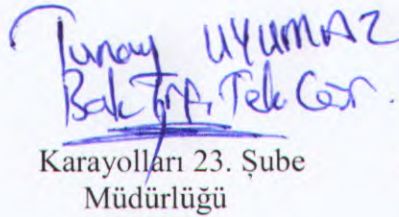 Tunay UYUMAZ
Bak. Trf. Tek. 
Karayolları 23. Şube
Müdürlüğü